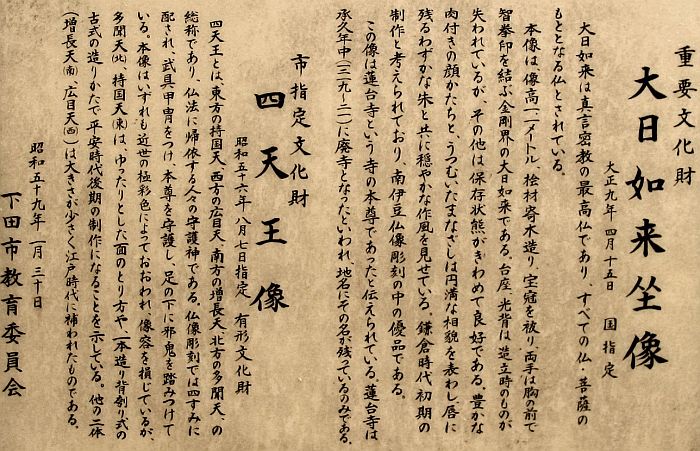 重要文化財
大日如来坐像
大正九年四月十五日 国指定
大日如来は真言密教の最高仏であり、すべての仏・菩薩の
もととなる仏とされている。
本像は、像高一・一メートル、桧材寄木造り、宝冠を被り、両手は胸の前で
智拳印を結ぶ金剛界の大日如来である。台座、光背は造立時のものが
失われているが、その他は保存状態がきわめて良好である。豊かな
肉付きの顔かたちと、うつむいたまなざしは円満な相貌を表わし、唇に
残るわずかな朱と共に穏やかな作風を見せている。鎌倉時代初期の
制作と考えられており、南伊豆仏像彫刻の中の優品である。
この像は蓮台寺という寺の本尊であったと伝えられている。蓮台寺は
承久年中(一二一九〜二一)に廃寺となったといわれ、地名にその名が残っているのみである。
市指定文化財
四天王像
昭和五十六年八月七日指定 有形文化財
四天王とは、東方の持国天、西方の広目天、南方の増長天、北方の多聞天、の
総称であり、仏法に帰依する人々の守護神である。仏像彫刻では四すみに
配され、武具甲冑をつけ、本尊を守護し、足の下に邪鬼を踏みつけて
いる。本像はいずれも近世の極彩色によっておおわれ、像容を損じているが、
多聞天(北)、持国天(東)は、ゆったりとした面のとり方や、一木造り背刳り式の
古式の造りかたで平安時代後期の制作になることを示している。他の二体
(増長天(南)、広目天(西))は大きさが少さく、江戸時代に補われたものである。
昭和五十九年一月三十日
下田市教育委員会